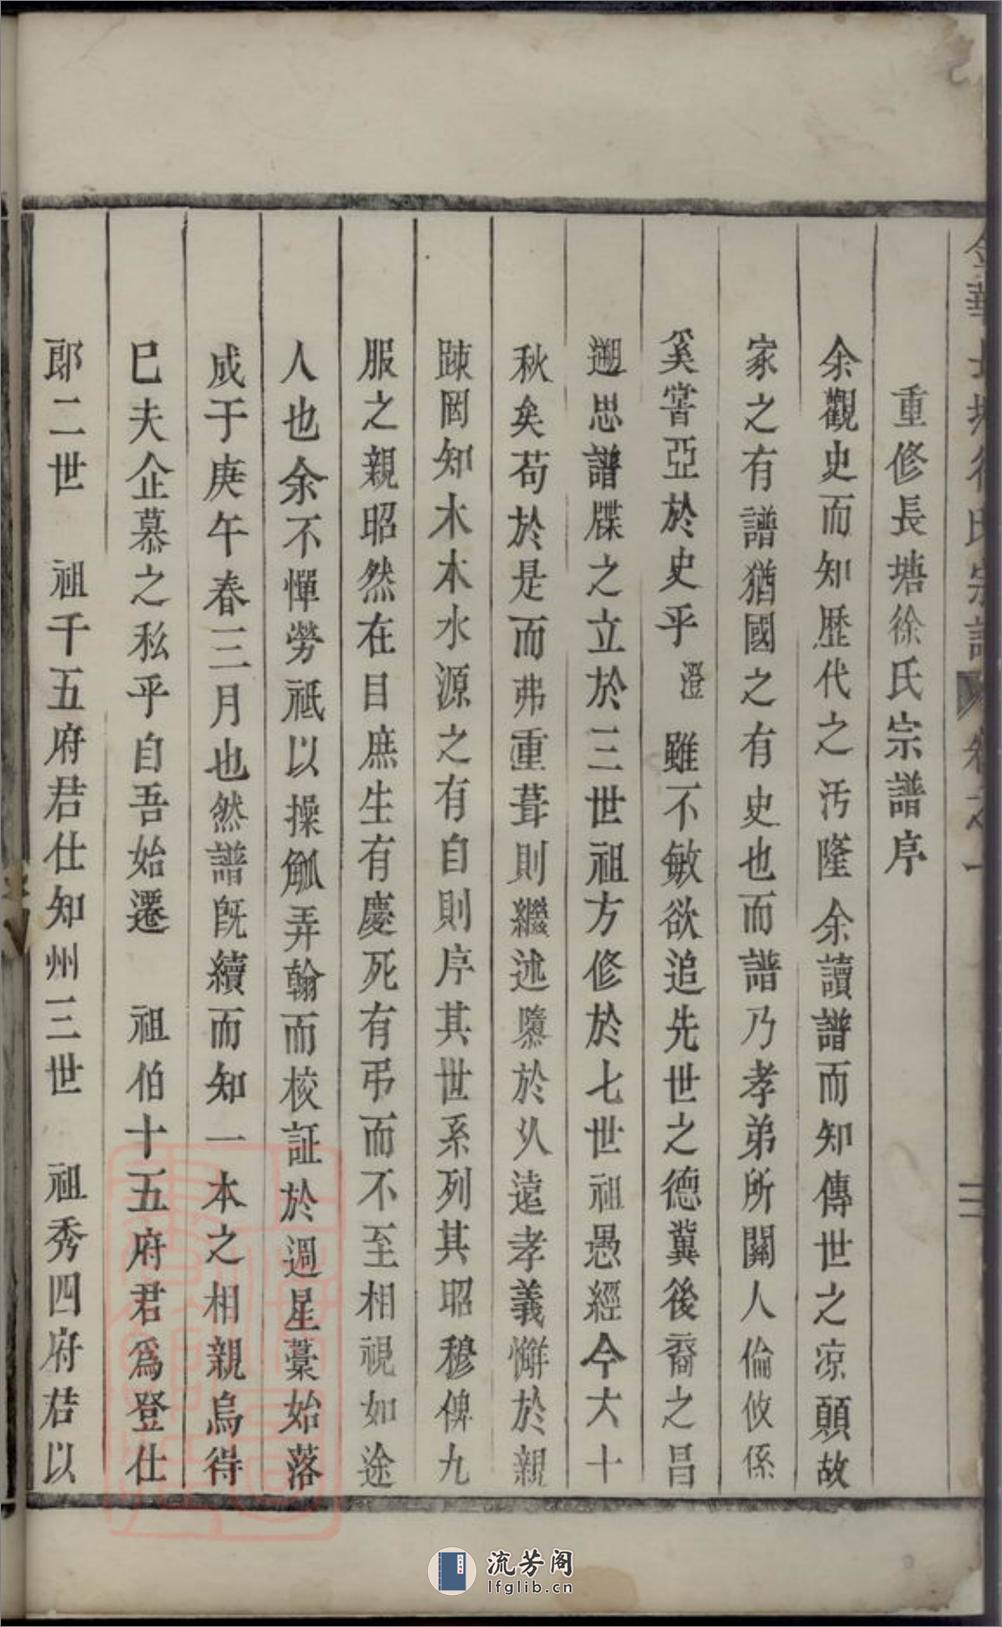 金華長塘徐氏宗譜 卷之一
重修長塘徐氏宗譜序
余觀史而知歷代之汚隆余讀譜而知傳世之凉顛故
家之有譜猶國之有史也而譜乃孝弟所關人倫攸係
奚啻亞於史乎澄雖不敏欲追先世之德冀後裔之昌
遡思譜牒之立於三世祖方修於七世祖愚經今六十
秋矣苟於是而弗重葺則繼述隳於久遠孝義懈於親
踈罔知木本水源之有自則序其世系列其昭穆俾九
服之親昭然在目庶生有慶死有弔而不至相視如途
人也余不憚勞祇以操觚弄翰而校証於週星藁始落
成于庚午春三月也然譜旣續而知一本之相親烏得
已夫企慕之私乎自吾始遷 祖伯十五府君爲登仕
郎二世 祖千五府君仕知州三世 祖秀四府君以
流芳阁
lfglib.cn